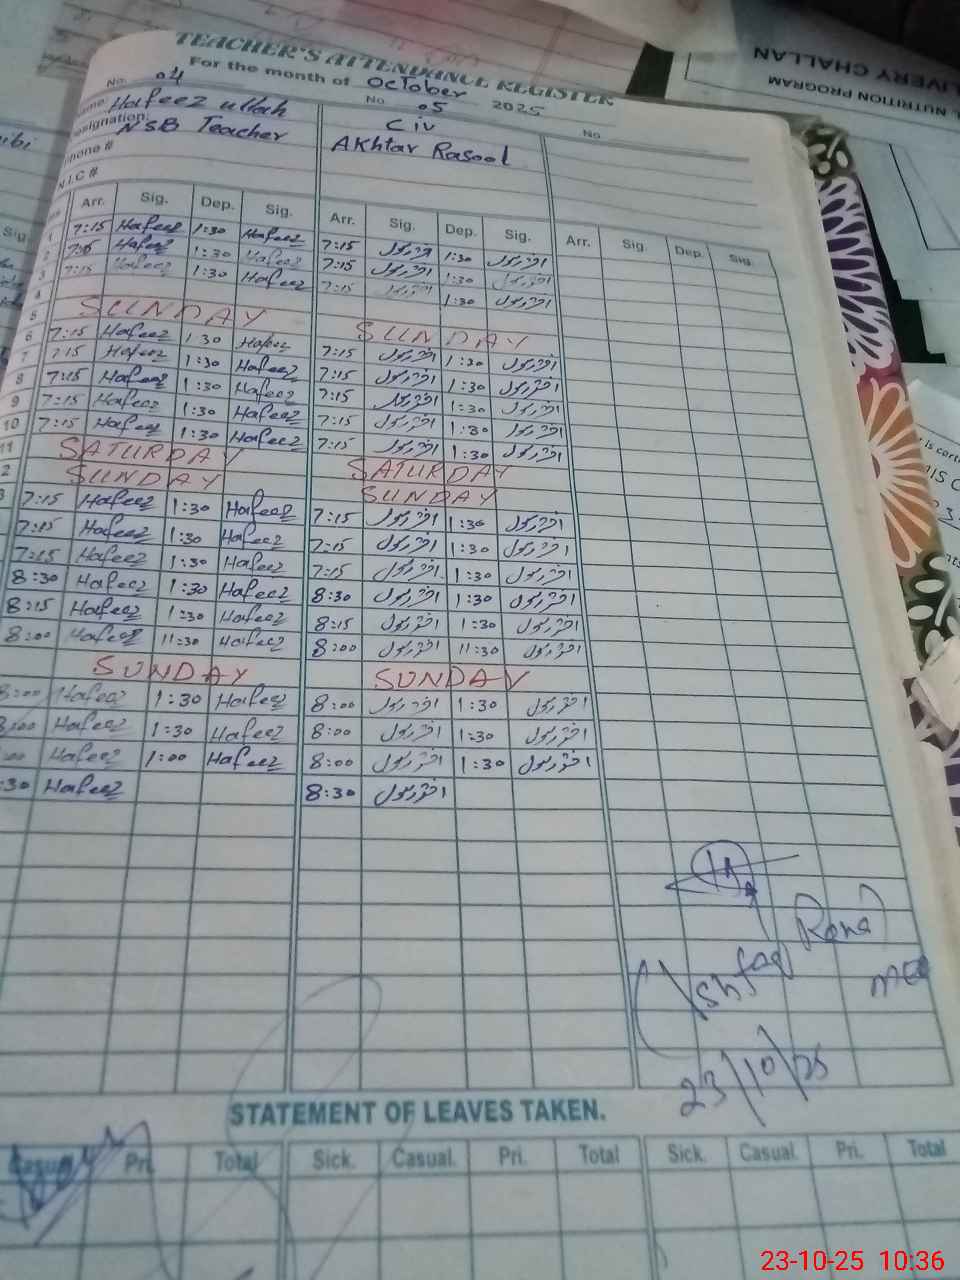 TEACHER'S ATTENDANCE REGISTER
For the month of October 2025
No. 04 No. 05 No.
Name: Hafeez ullah Civ
Designation: NSB Teacher Akhtar Rasool
Phone #
N.I.C #
Arr. Sig. Dep. Sig. Arr. Sig. Dep. Sig. Arr. Sig. Dep. Sig.
1 7:15 Hafeez 1:30 Hafeez 7:15 اختر رسول 1:30 اختر رسول
2 7:15 Hafeez 1:30 Hafeez 7:15 اختر رسول 1:30 اختر رسول
3 7:15 Hafeez 1:30 Hafeez 7:15 اختر رسول 1:30 اختر رسول
4
5 SUNDAY SUNDAY
6 7:15 Hafeez 1:30 Hafeez 7:15 اختر رسول 1:30 اختر رسول
7 7:15 Hafeez 1:30 Hafeez 7:15 اختر رسول 1:30 اختر رسول
8 7:15 Hafeez 1:30 Hafeez 7:15 اختر رسول 1:30 اختر رسول
9 7:15 Hafeez 1:30 Hafeez 7:15 اختر رسول 1:30 اختر رسول
10 7:15 Hafeez 1:30 Hafeez 7:15 اختر رسول 1:30 اختر رسول
11 SATURDAY SATURDAY
2 SUNDAY SUNDAY
3 7:15 Hafeez 1:30 Hafeez 7:15 اختر رسول 1:30 اختر رسول
7:15 Hafeez 1:30 Hafeez 7:15 اختر رسول 1:30 اختر رسول
7:15 Hafeez 1:30 Hafeez 7:15 اختر رسول 1:30 اختر رسول
8:30 Hafeez 1:30 Hafeez 8:30 اختر رسول 1:30 اختر رسول
8:15 Hafeez 1:30 Hafeez 8:15 اختر رسول 1:30 اختر رسول
8:00 Hafeez 11:30 Hafeez 8:00 اختر رسول 11:30 اختر رسول
SUNDAY SUNDAY
8:00 Hafeez 1:30 Hafeez 8:00 اختر رسول 1:30 اختر رسول
8:00 Hafeez 1:30 Hafeez 8:00 اختر رسول 1:30 اختر رسول
:00 Hafeez 1:00 Hafeez 8:00 اختر رسول 1:30 اختر رسول
:30 Hafeez 8:30 اختر رسول
(Ashfaq Rana)
23/10/25
STATEMENT OF LEAVES TAKEN.
Casual Pri. Total Sick. Casual. Pri. Total Sick. Casual. Pri. Total
LIVERY CHALLAN
NUTRITION PROGRAM
23-10-25 10:36